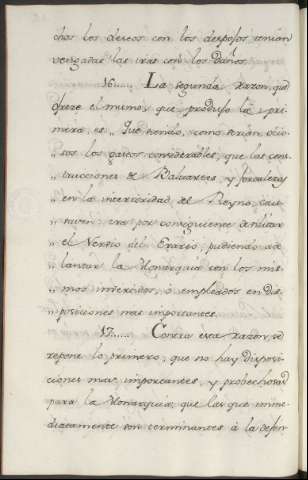 chos los deseos con los despojos unian
vengadas las iras con los Daños.
16..... La segunda razon, que
ofreze el mismo, que produjo la pri-
mera, es " Que siendo, como serian ocio-
" sos los gastos considerables, que las cons-
" trucciones de Baluartes, y fortalezas
" en la interioridad del Reyno, caus-
" era por consiguiente devilitar
" el Nervio del Erario, pudiendo ade-
" lantar la Monarquia con los mis-
" mos interesses, ò empleados en Dis-
" posiciones mas importantes.
17..... Contra esta razon, se
repone lo primero, que no hay disposi-
ciones mas importantes, y probechosas
para la Monarquia, que las que imme-
diatamente son terminantes à la defen-